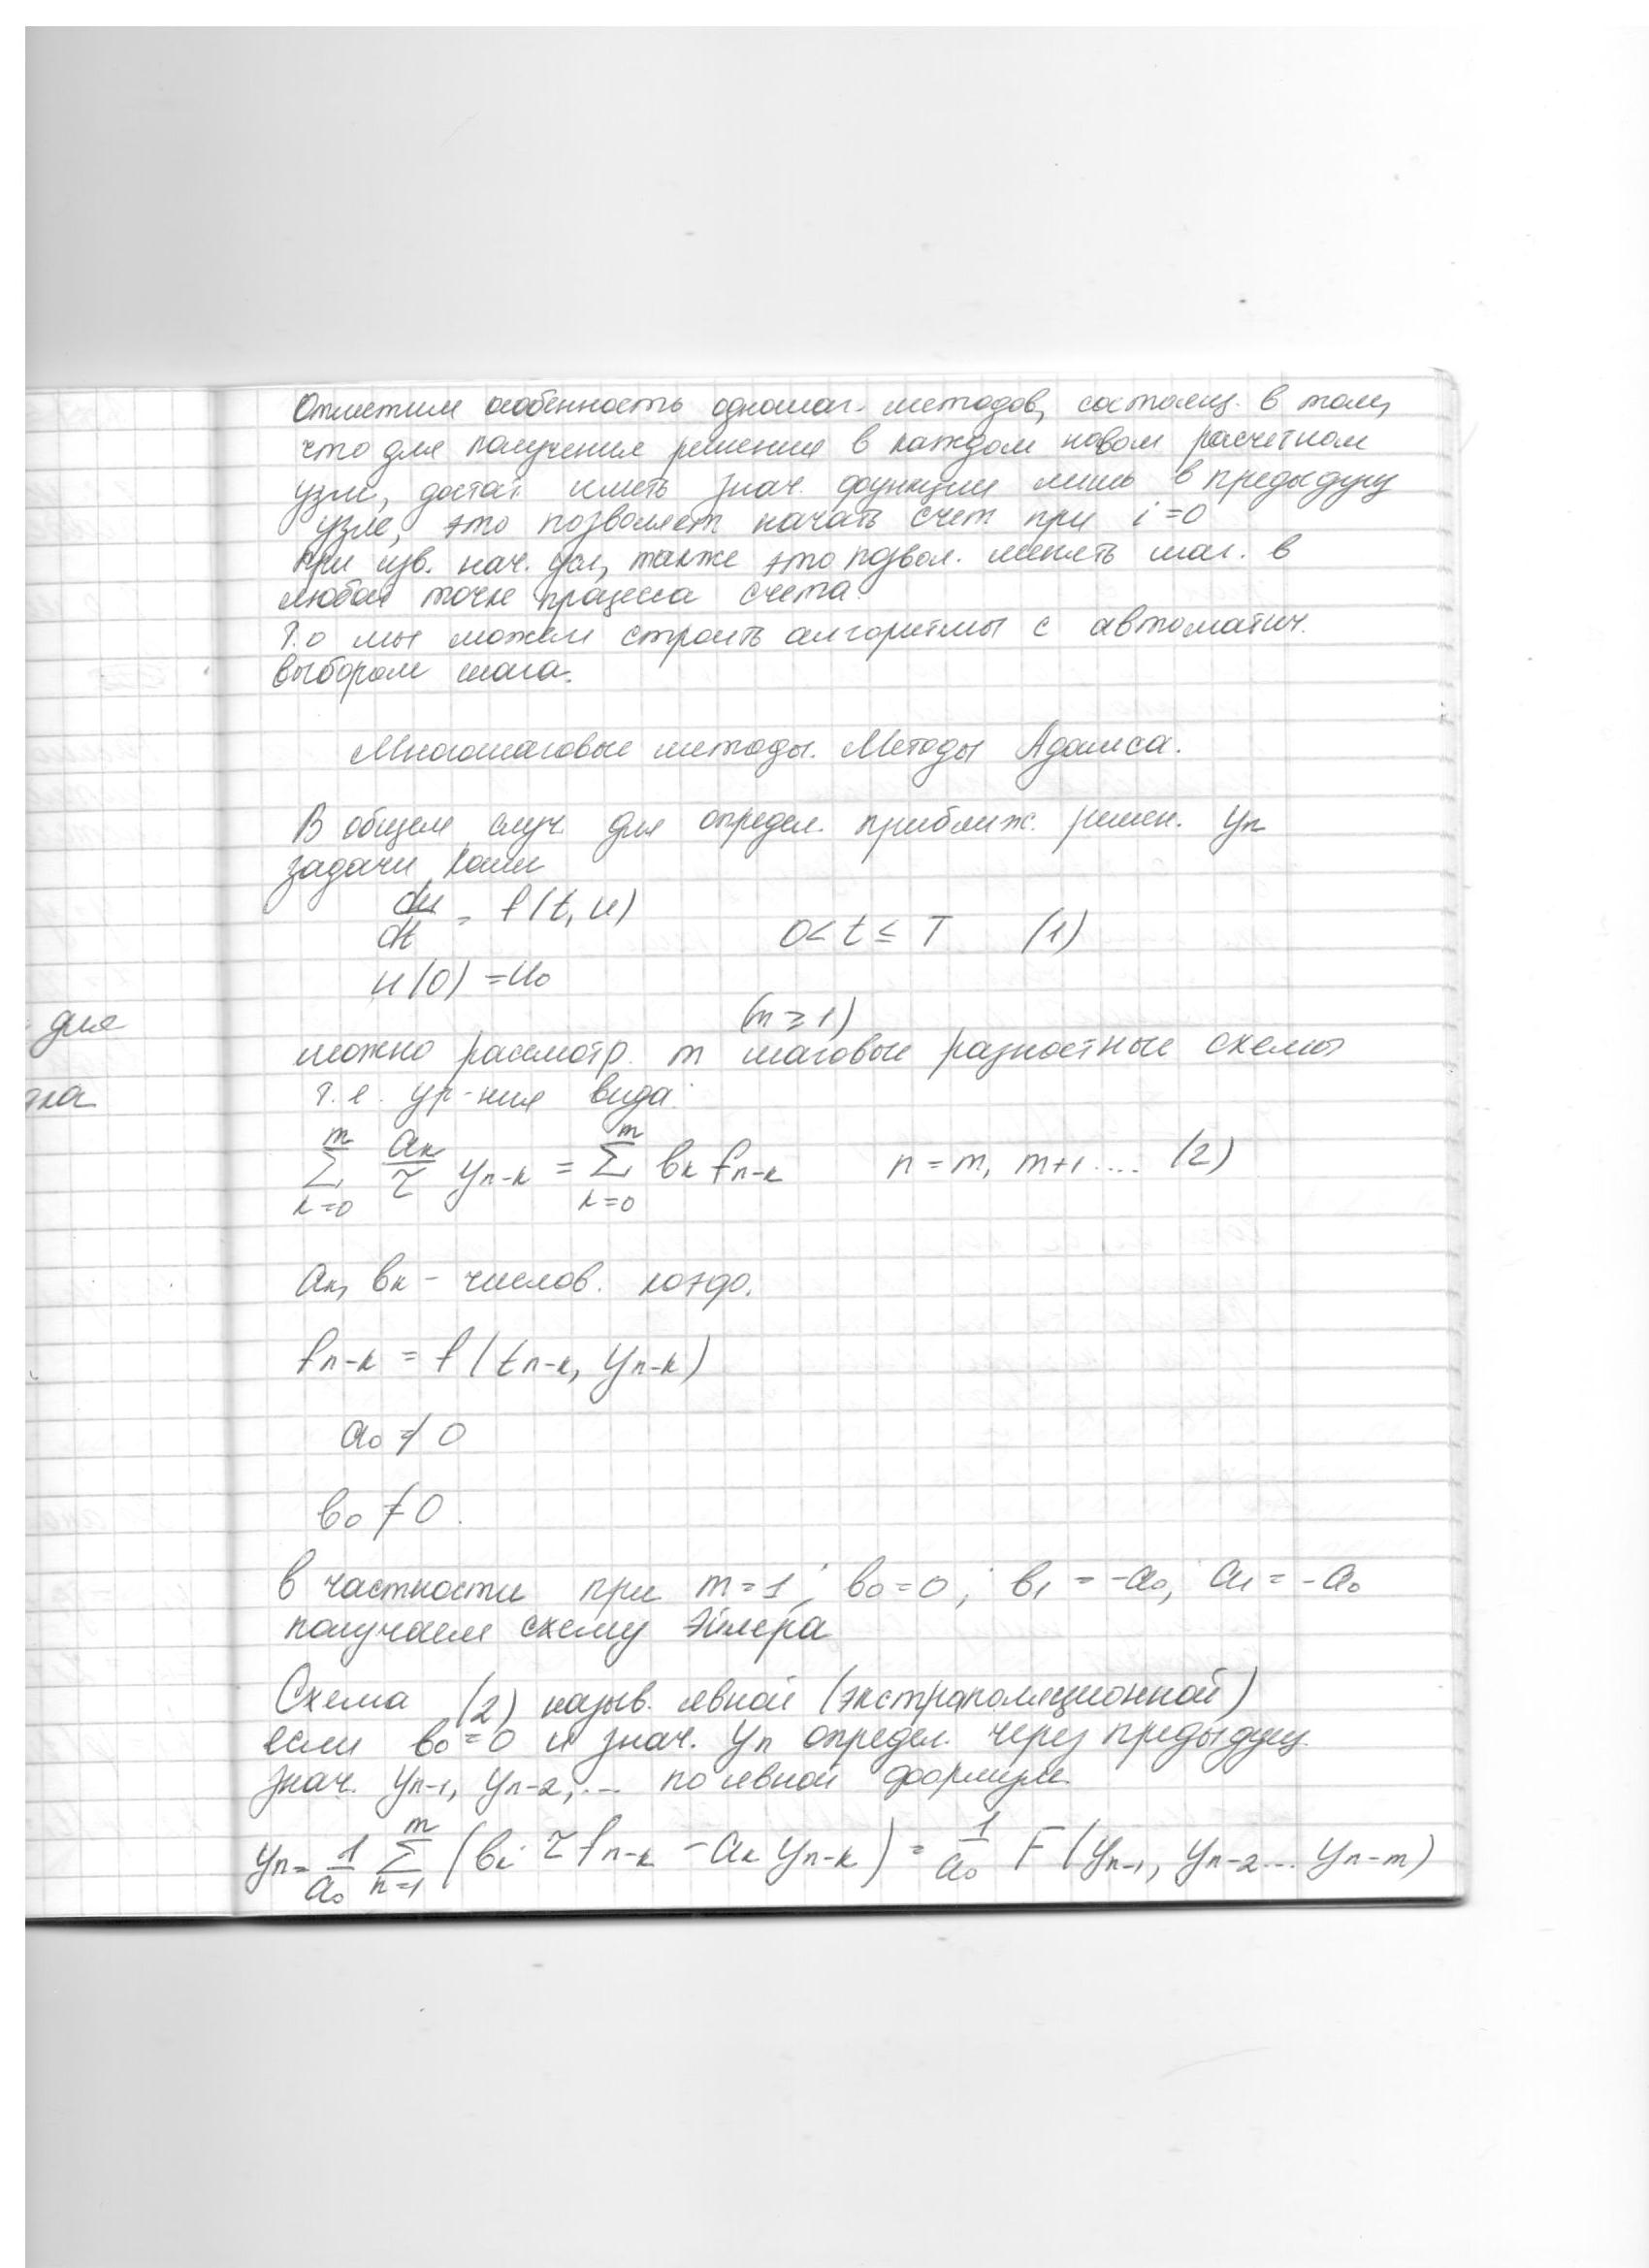 Отметим особенность одношаг. методов, состоящ. в том,
что для получения решения в каждом новом расчетном
узле, достат. иметь знач. функции лишь в предыдущ
узле, это позволяет начать счет при i=0
при изв. нач. усл, также это позвол. менять шаг. в
любой точке процесса счета.
Т.о мы можем строить алгоритмы с автоматич.
выбором шага.
Многошаговые методы. Методы Адамса.
В общем случ. для определ. приближ. решен. yn
задачи Коши
du/dt = f(t, u)
0< t ≤ T (1)
u(0) = u₀
(m ≥ 1)
для
можно рассмотр. m шаговые разностные схемы
т.е. ур-ния вида:
∑_{k=0}^{m} aₖ/τ yₙ₋ₖ = ∑_{k=0}^{m} bₖ fₙ₋ₖ n = m, m+1.... (2)
aₖ, bₖ – числов. коэф.
fₙ₋ₖ = f(tₙ₋ₖ, yₙ₋ₖ)
a₀ ≠ 0
b₀ ≠ 0.
в частности при m=1; b₀=0; b₁ = -a₀; a₁ = -a₀
получаем схему Эйлера
Схема (2) назыв. явной (экстраполяционной)
если b₀=0 и знач. yn определ. через предыдущ.
знач. yₙ₋₁, yₙ₋₂,... по явной формуле.
yₙ = 1/a₀ ∑_{n=1}^{m} (bₖ·τ fₙ₋ₖ - aₖ yₙ₋ₖ) = 1/a₀ F(yₙ₋₁, yₙ₋₂... yₙ₋ₘ)